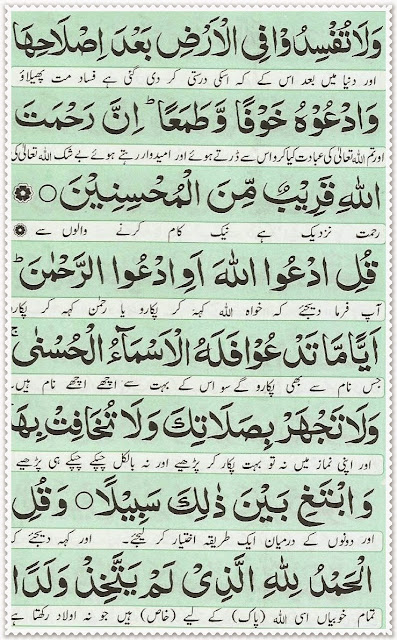 وَلَا تُفْسِدُوْا فِی الْاَرْضِ بَعْدَ اِصْلَاحِهَا
اور دنیا میں بعد اس کے کہ اسکی درستی کر دی گئی ہے فساد مت پھیلاؤ
وَادْعُوْهُ خَوْفًا وَّطَمَعًا ؕ اِنَّ رَحْمَتَ
اور تم اللہ تعالیٰ کی عبادت کیا کرو اس سے ڈرتے ہوئے اور امیدوار رہتے ہوئے بے شک اللہ تعالیٰ کی
اللهِ قَرِیْبٌ مِّنَ الْمُحْسِنِیْنَ ○
رحمت نزدیک ہے نیک کام کرنے والوں سے
قُلِ ادْعُوا اللهَ اَوِ ادْعُوا الرَّحْمٰنَ ؕ
آپ فرما دیجئے کہ خواہ اللہ کہہ کر پکارو یا رحمٰن کہہ کر پکارو
اَیًّا مَّا تَدْعُوْا فَلَهُ الْاَسْمَآءُ الْحُسْنٰی ۚ
جس نام سے بھی پکارو گے سو اس کے بہت سے اچھے اچھے نام ہیں۔
وَلَا تَجْهَرْ بِصَلَاتِكَ وَلَا تُخَافِتْ بِهَا
اور اپنی نماز میں نہ تو بہت پکار کر پڑھیے اور نہ بالکل چپکے چپکے ہی پڑھیے
وَابْتَغِ بَیْنَ ذٰلِكَ سَبِیْلًا ○ وَقُلِ
اور دونوں کے درمیان ایک طریقہ اختیار کر لیجئے۔ اور کہہ دیجئے کہ
الْحَمْدُ لِلّٰهِ الَّذِیْ لَمْ یَتَّخِذْ وَلَدًا
تمام خوبیاں اسی اللہ (پاک) کے لیے (خاص) ہیں جو نہ اولاد رکھتا ہے